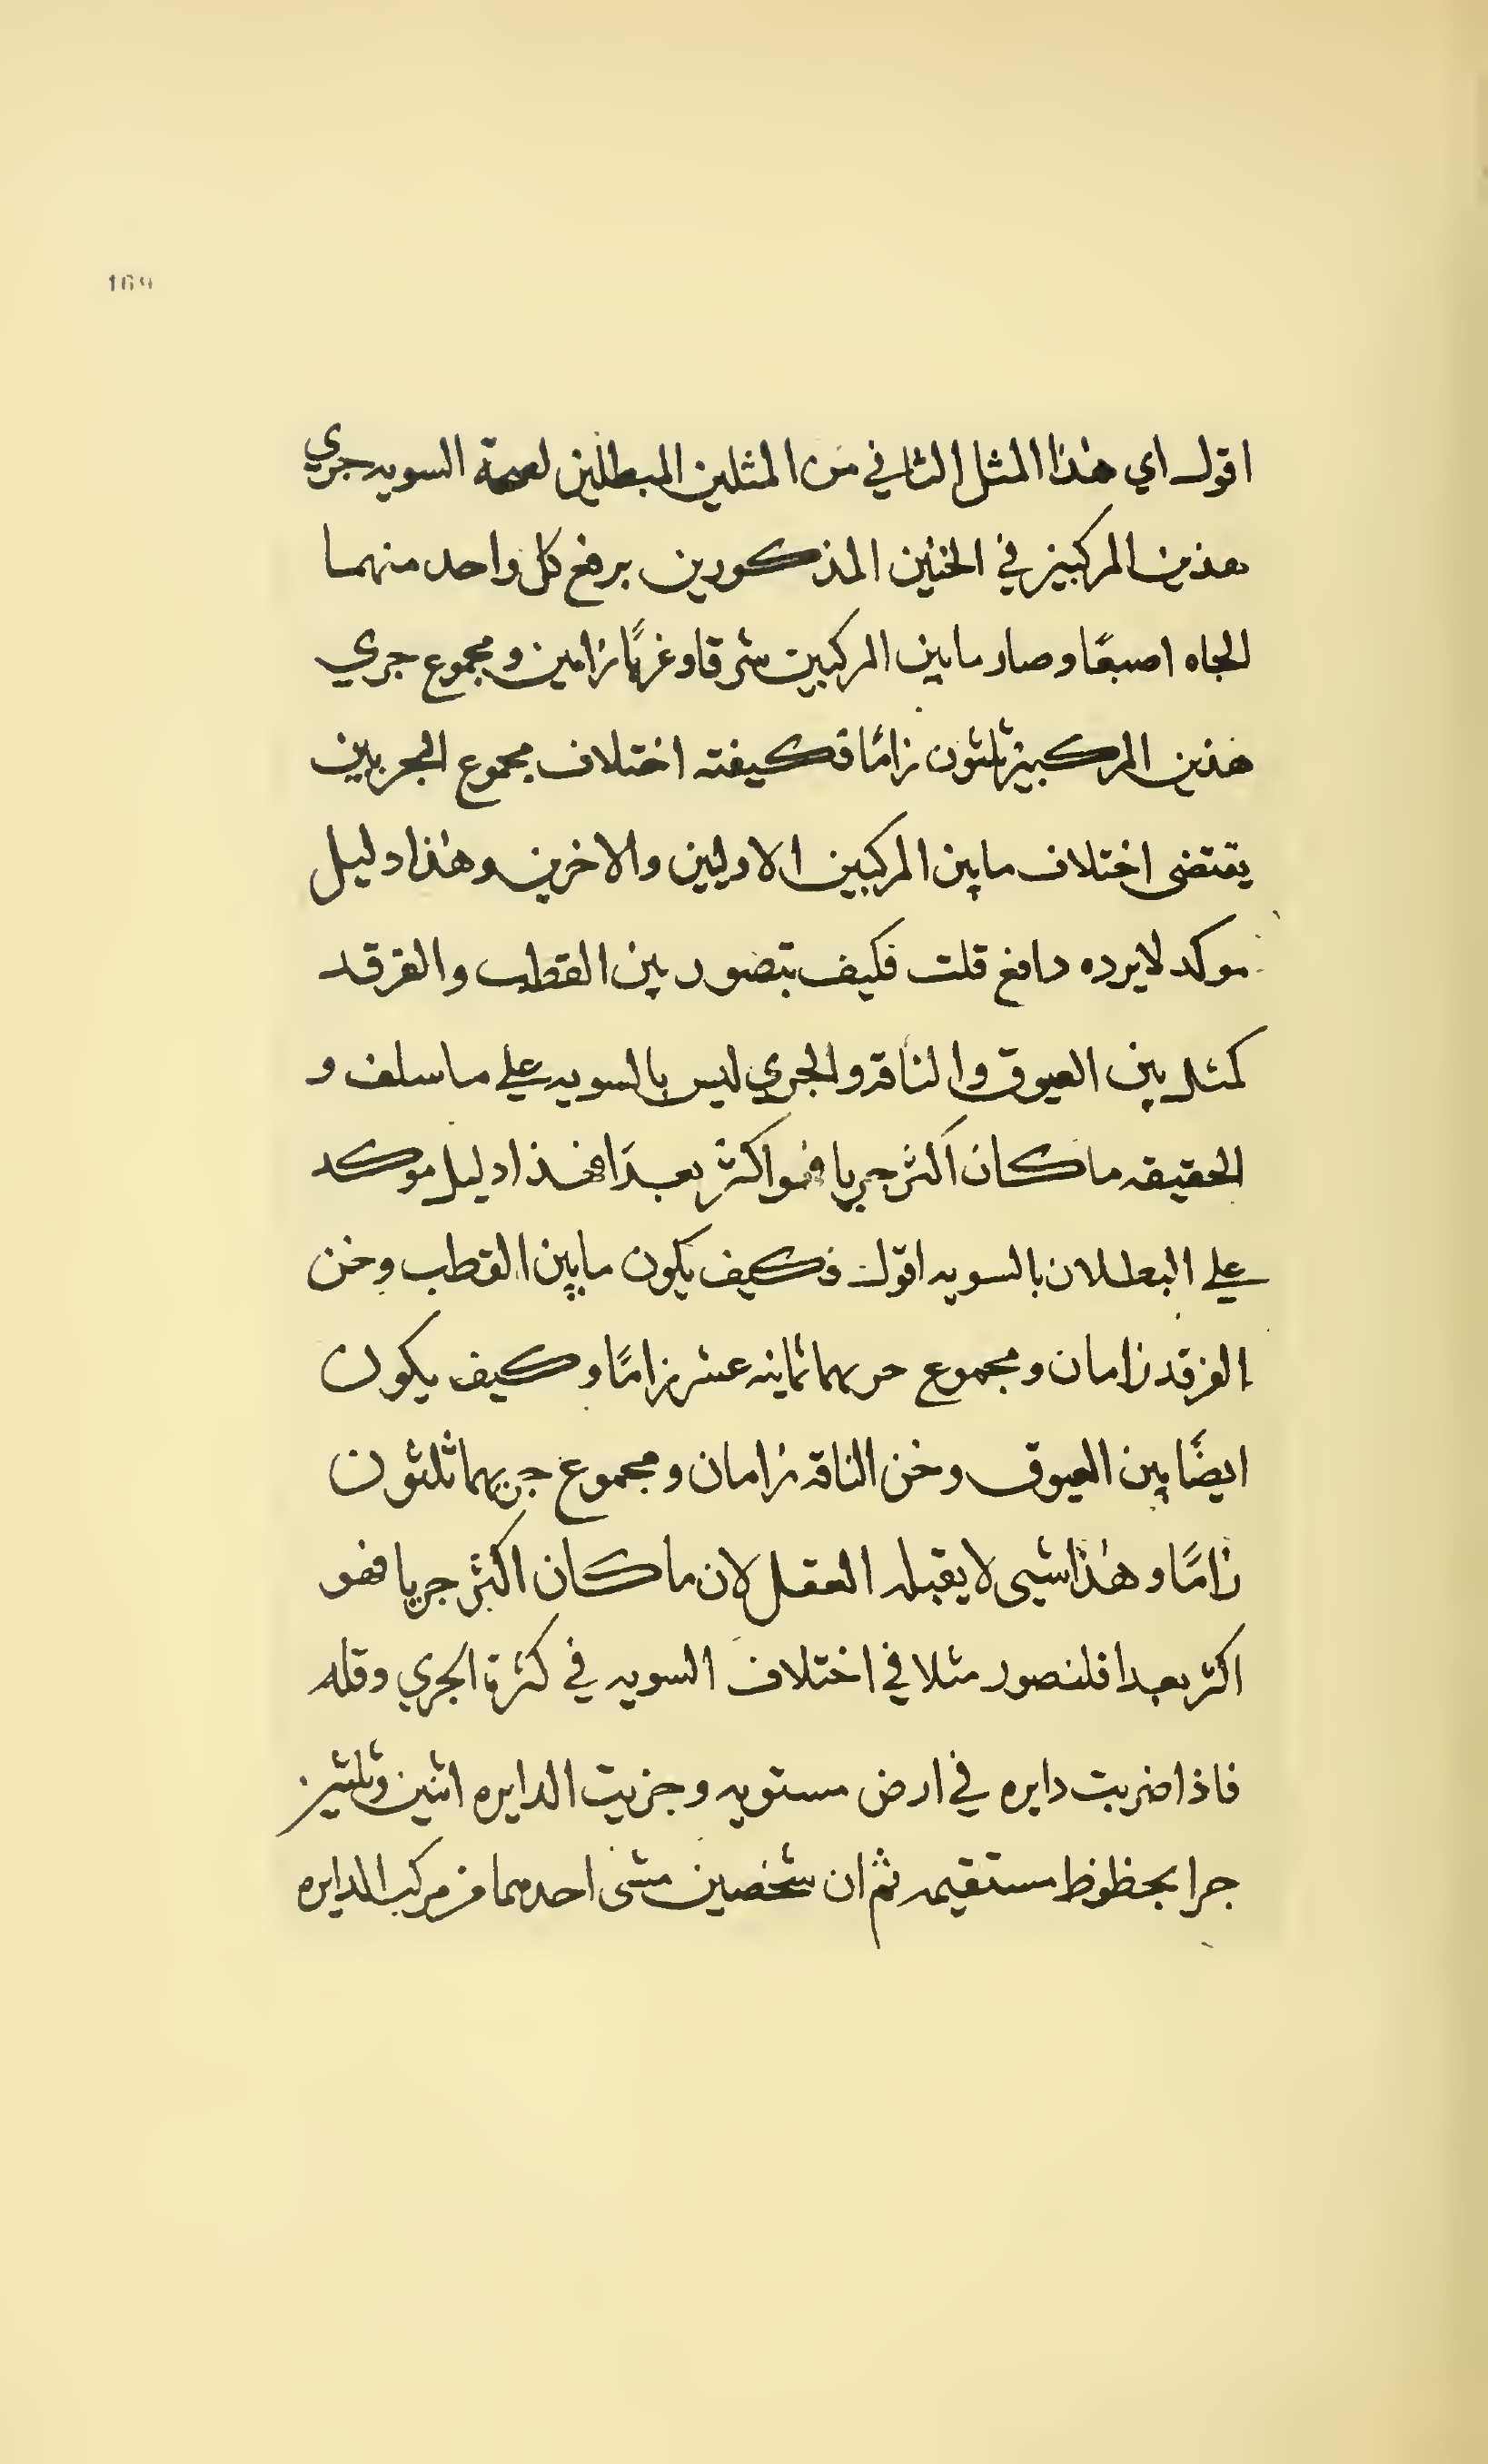 169
اقول اي هذا المثل الثاني من المثلين المبطلين لصحة السويه جري
هذين المركبين في الخنين المذكورين برفع كل واحد منهما
الجاه اصبعًا وصار ما بين المركبين شرقا وغربًا زامين ومجموع جري
هذين المركبين ثلثون زامًا فكيفته اختلاف مجموع الجريين
يقتضى اختلاف ما بين المركبين الاوليين والاخرين وهذا دليل
موكد لا يرده دافع قلت فكيف يتصور بين القطب والفرقد
كمثل بين العيوق والناقه والجري ليس بالسويه علي ما سلف و
الحقيقه ما كان اكثر جريا فهو اكثر بعدًا فهذا دليل موكد
علي البطلان بالسويه اقول فكيف يكون ما بين القطب وخن
الفرقد زامان ومجموع جريهما ثمانيه عشر زامًا وكيف يكون
ايضًا بين العيوق وخن الناقه زامان ومجموع جريهما ثلثون
زامًا وهذا شيى لا يقبله العقل لان ما كان اكثر جريا فهو
اكثر بعدا فلنصور مثلا في اختلاف السويه في كثرة الجري وقله
فاذا ضربت دايره في ارض مستويه وجزيت الدايره اثنين وثلثين
جزا بخطوط مستقيمه ثم ان شخصين مشى احدهما من مركب الدايره